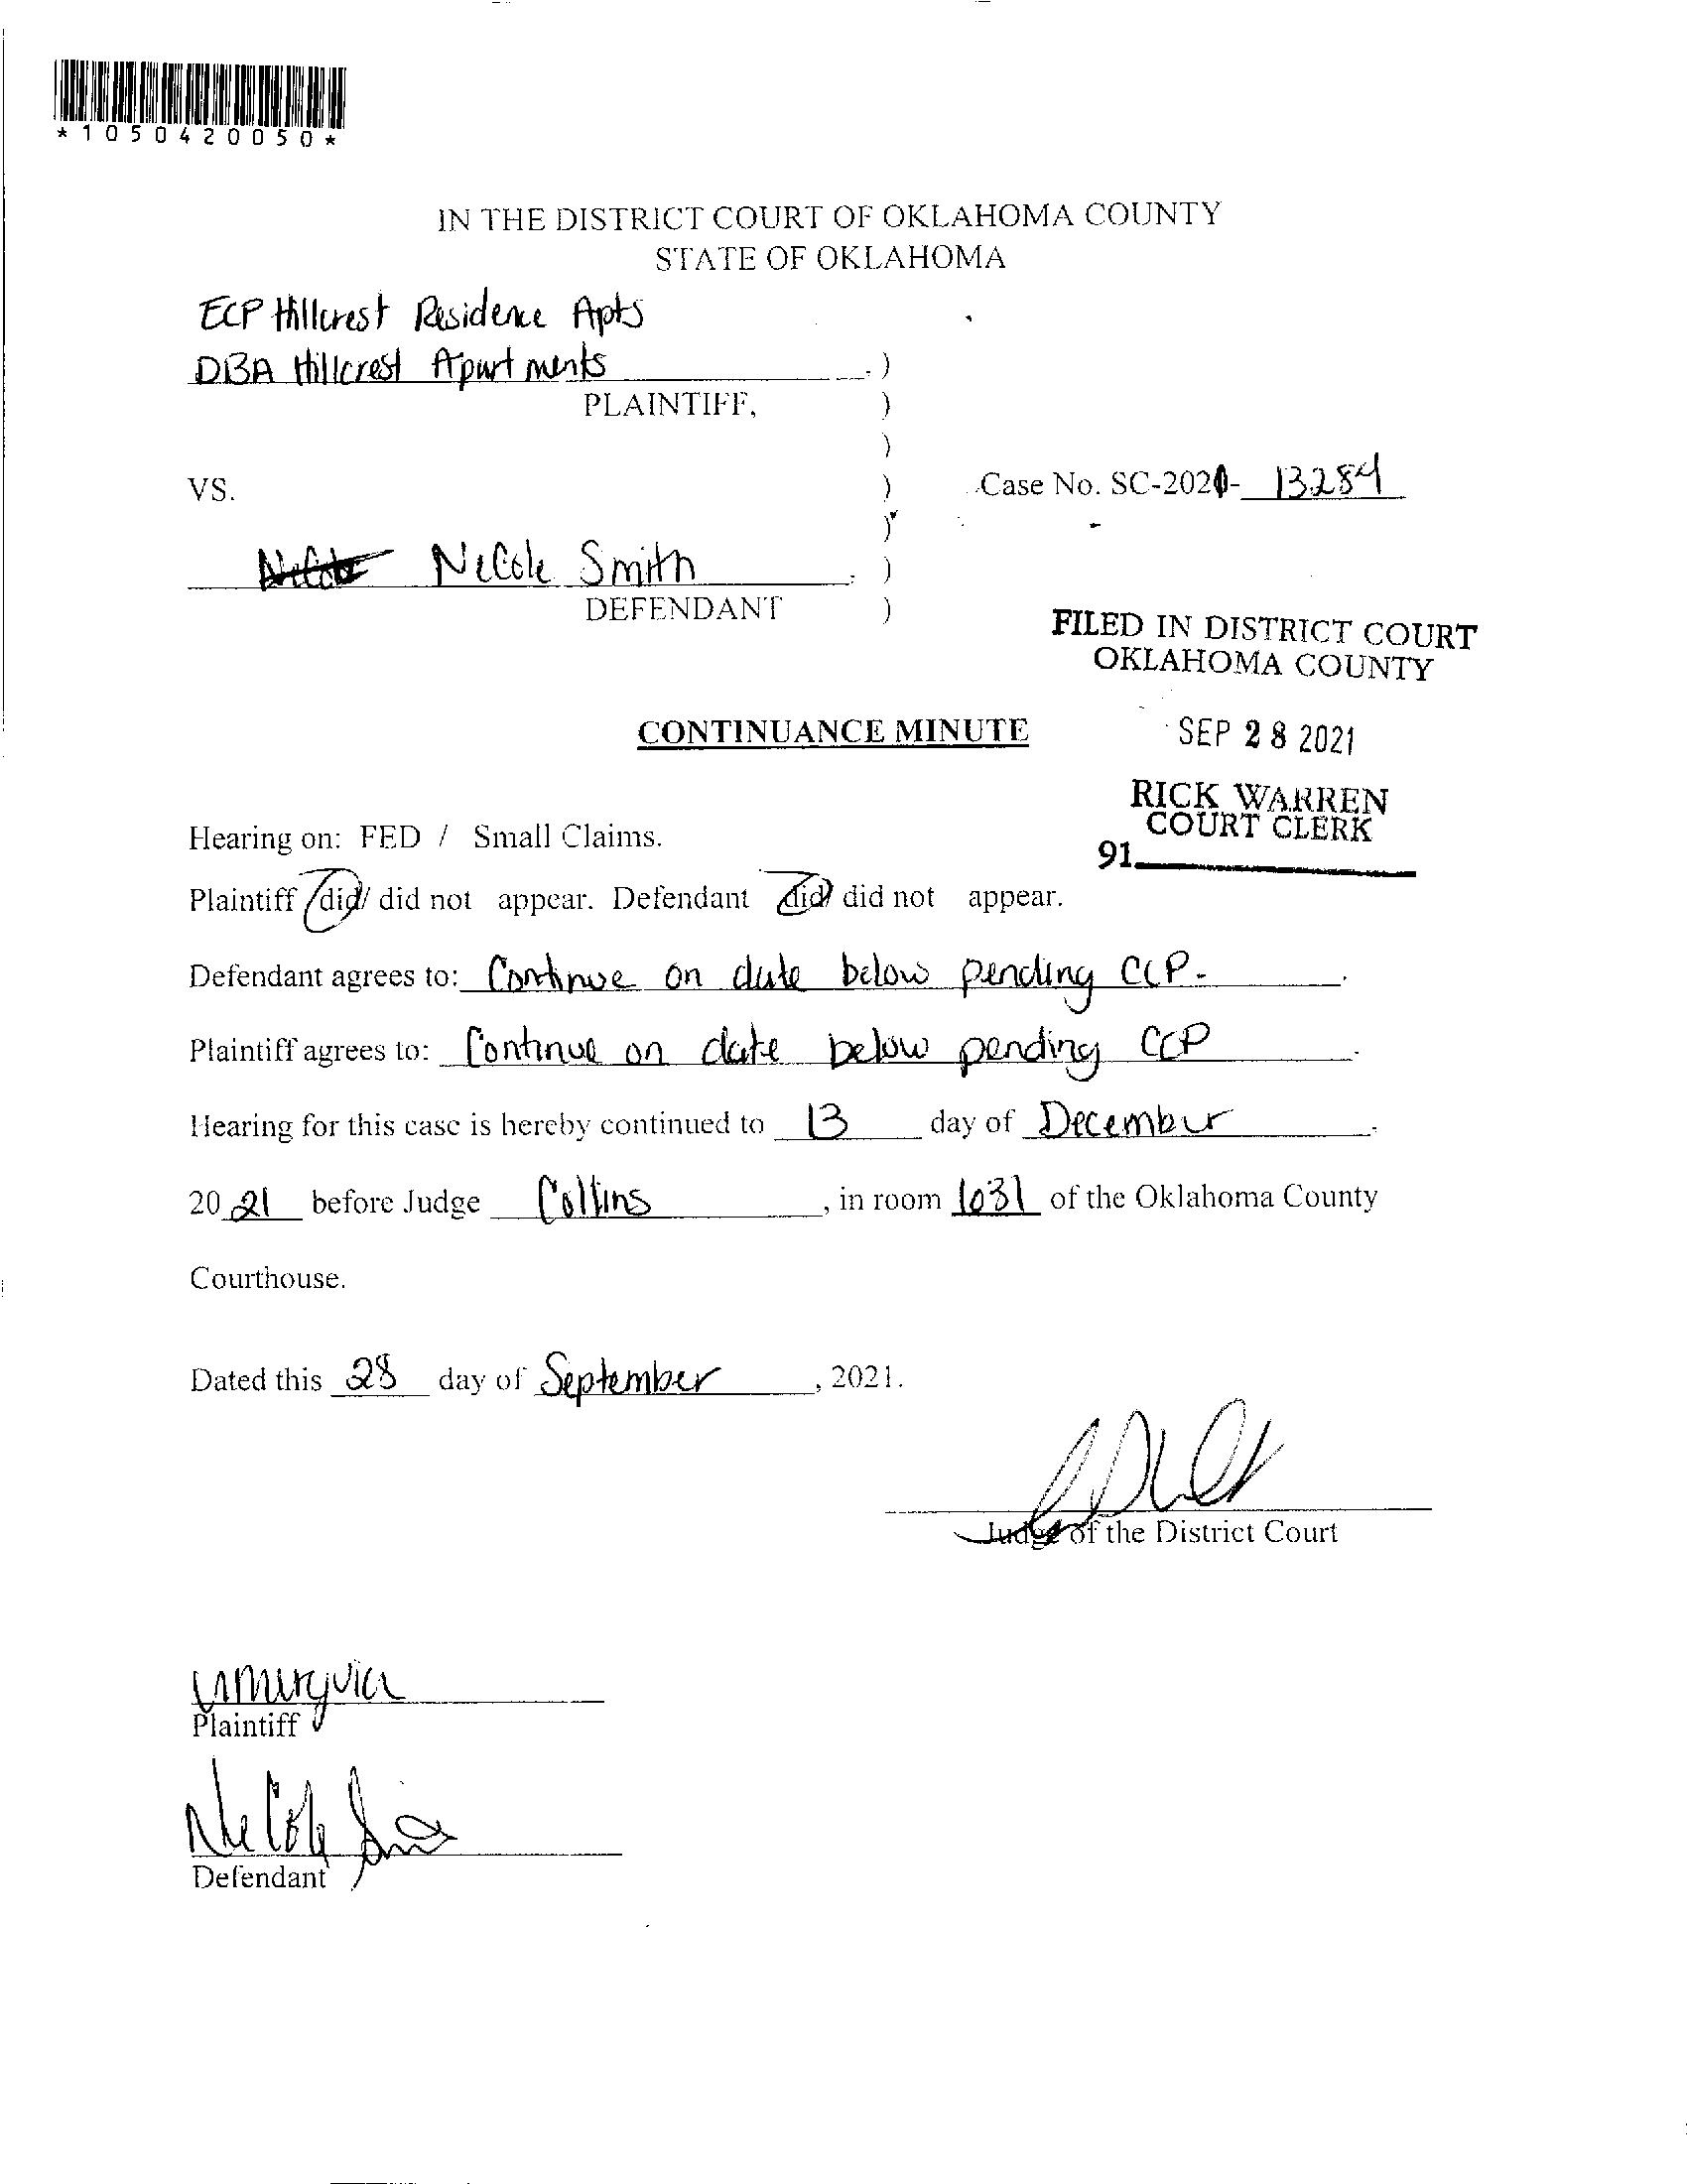 *1050420050*
IN THE DISTRICT COURT OF OKLAHOMA COUNTY
STATE OF OKLAHOMA
ECP Hillcrest Residence Apts
DBA Hillcrest Apartments )
PLAINTIFF, )
)
VS. ) Case No. SC-2021- 13284
)
NeCole Smith )
DEFENDANT )
FILED IN DISTRICT COURT
OKLAHOMA COUNTY
CONTINUANCE MINUTE
SEP 28 2021
RICK WARREN
COURT CLERK
91
Hearing on: FED / Small Claims.
Plaintiff did/ did not appear. Defendant did/ did not appear.
Defendant agrees to: Continue on date below pending CCP.
Plaintiff agrees to: Continue on date below pending CCP.
Hearing for this case is hereby continued to 13 day of December,
20 21 before Judge Collins, in room 1031 of the Oklahoma County
Courthouse.
Dated this 28 day of September, 2021.
Judge of the District Court
Plaintiff
NeCole
Defendant